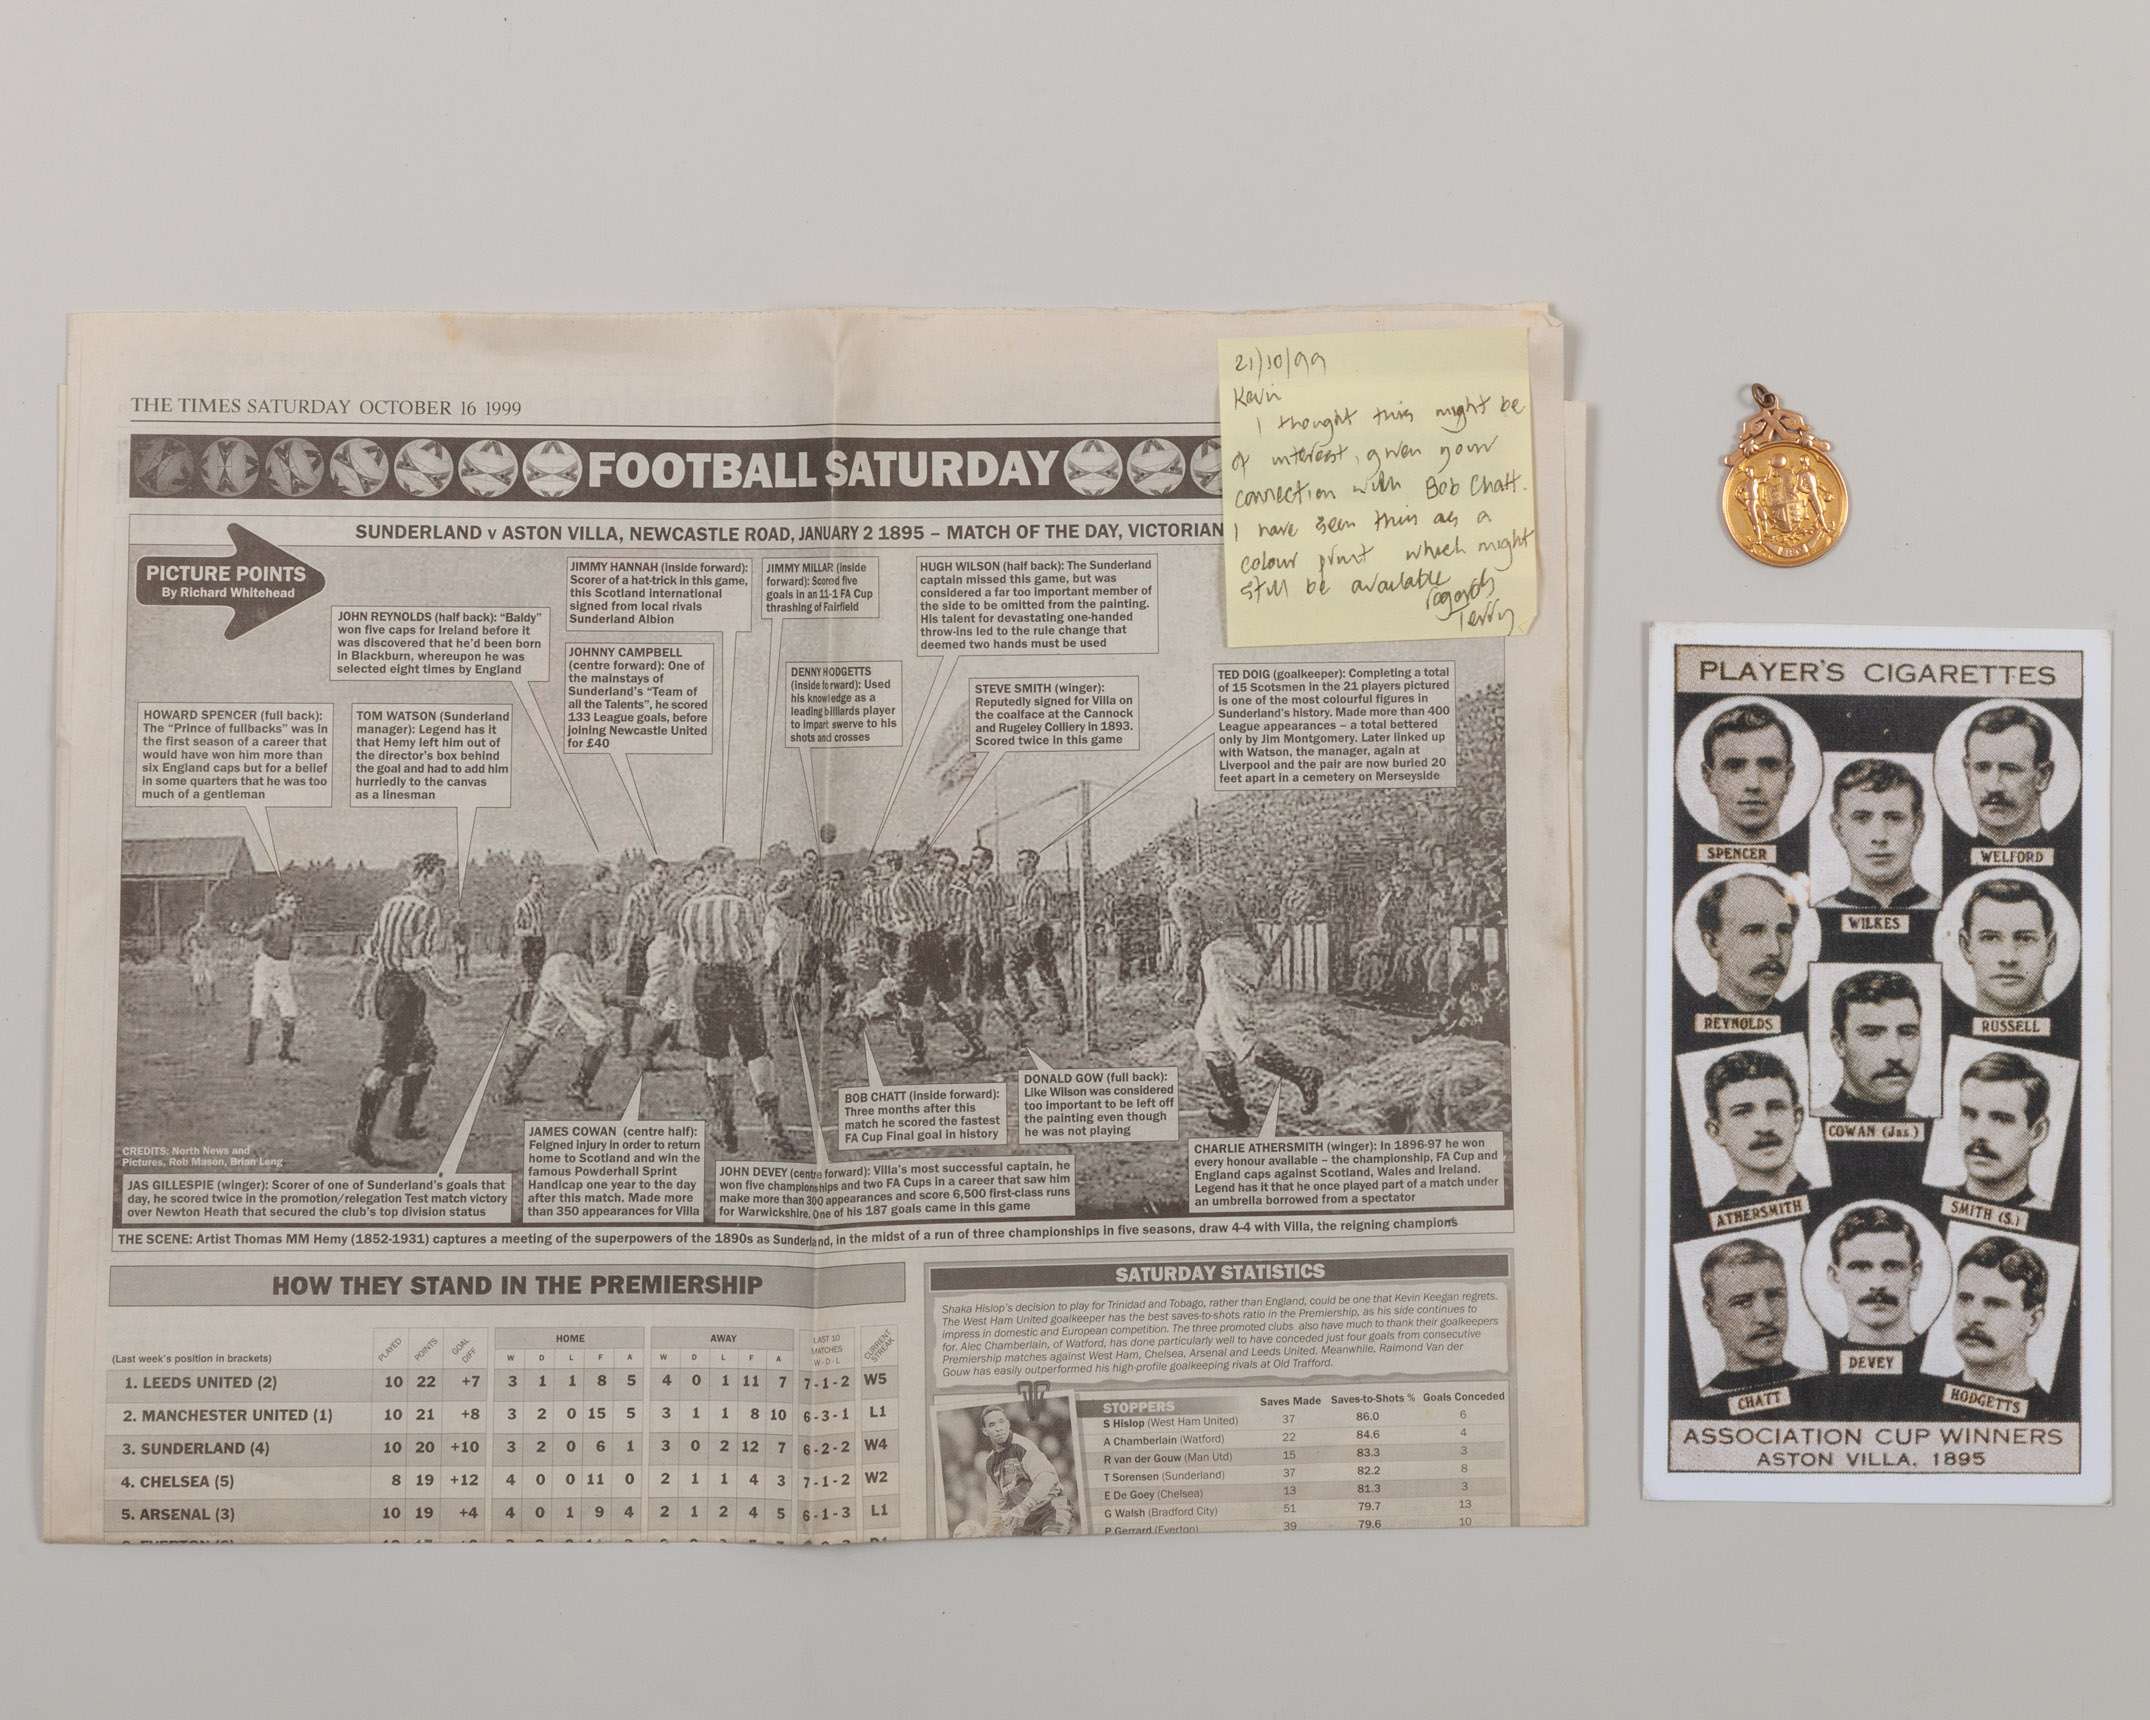 THE TIMES SATURDAY OCTOBER 16 1999
FOOTBALL SATURDAY
SUNDERLAND v ASTON VILLA, NEWCASTLE ROAD, JANUARY 2 1895 – MATCH OF THE DAY, VICTORIAN
PICTURE POINTS
By Richard Whitehead
JOHN REYNOLDS (half back): “Baldy”
won five caps for Ireland before it
was discovered that he’d been born
in Blackburn, whereupon he was
selected eight times by England
JIMMY HANNAH (inside forward):
Scorer of a hat-trick in this game,
this Scotland international
signed from local rivals
Sunderland Albion
JIMMY MILLAR (inside
forward): Scored five
goals in an 11-1 FA Cup
thrashing of Fairfield
HUGH WILSON (half back): The Sunderland
captain missed this game, but was
considered a far too important member of
the side to be omitted from the painting.
His talent for devastating one-handed
throw-ins led to the rule change that
deemed two hands must be used
HOWARD SPENCER (full back):
The “Prince of fullbacks” was in
the first season of a career that
would have won him more than
six England caps but for a belief
in some quarters that he was too
much of a gentleman
TOM WATSON (Sunderland
manager): Legend has it
that Hemy left him out of
the director’s box behind
the goal and had to add him
hurriedly to the canvas
as a linesman
JOHNNY CAMPBELL
(centre forward): One of
the mainstays of
Sunderland’s “Team of
all the Talents”, he scored
133 League goals, before
joining Newcastle United
for £40
DENNY HODGETTS
(inside forward): Used
his knowledge as a
leading billiards player
to impart swerve to his
shots and crosses
STEVE SMITH (winger):
Reputedly signed for Villa on
the coalface at the Cannock
and Rugeley Colliery in 1893.
Scored twice in this game
TED DOIG (goalkeeper): Completing a total
of 15 Scotsmen in the 21 players pictured
is one of the most colourful figures in
Sunderland’s history. Made more than 400
League appearances – a total bettered
only by Jim Montgomery. Later linked up
with Watson, the manager, again at
Liverpool and the pair are now buried 20
feet apart in a cemetery on Merseyside
CREDITS: North News and
Pictures, Rob Mason, Brian Leng
JAS GILLESPIE (winger): Scorer of one of Sunderland’s goals that
day, he scored twice in the promotion/relegation Test match victory
over Newton Heath that secured the club’s top division status
JAMES COWAN (centre half):
Feigned injury in order to return
home to Scotland and win the
famous Powderhall Sprint
Handicap one year to the day
after this match. Made more
than 350 appearances for Villa
JOHN DEVEY (centre forward): Villa’s most successful captain, he
won five championships and two FA Cups in a career that saw him
make more than 300 appearances and score 6,500 first-class runs
for Warwickshire. One of his 187 goals came in this game
BOB CHATT (inside forward):
Three months after this
match he scored the fastest
FA Cup Final goal in history
DONALD GOW (full back):
Like Wilson was considered
too important to be left off
the painting even though
he was not playing
CHARLIE ATHERSMITH (winger): In 1896-97 he won
every honour available – the championship, FA Cup and
England caps against Scotland, Wales and Ireland.
Legend has it that he once played part of a match under
an umbrella borrowed from a spectator
THE SCENE: Artist Thomas MM Hemy (1852-1931) captures a meeting of the superpowers of the 1890s as Sunderland, in the midst of a run of three championships in five seasons, draw 4-4 with Villa, the reigning champions
HOW THEY STAND IN THE PREMIERSHIP
HOME AWAY
(Last week’s position in brackets) PLAYED POINTS GOAL DIFF W D L F A W D L F A LAST 10 MATCHES W-D-L CURRENT STREAK
1. LEEDS UNITED (2) 10 22 +7 3 1 1 8 5 4 0 1 11 7 7-1-2 W5
2. MANCHESTER UNITED (1) 10 21 +8 3 2 0 15 5 3 1 1 8 10 6-3-1 L1
3. SUNDERLAND (4) 10 20 +10 3 2 0 6 1 3 0 2 12 7 6-2-2 W4
4. CHELSEA (5) 8 19 +12 4 0 0 11 0 2 1 1 4 3 7-1-2 W2
5. ARSENAL (3) 10 19 +4 4 0 1 9 4 2 1 2 4 5 6-1-3 L1
SATURDAY STATISTICS
Shaka Hislop’s decision to play for Trinidad and Tobago, rather than England, could be one that Kevin Keegan regrets.
The West Ham United goalkeeper has the best saves-to-shots ratio in the Premiership, as his side continues to
impress in domestic and European competition. The three promoted clubs also have much to thank their goalkeepers
for. Alec Chamberlain, of Watford, has done particularly well to have conceded just four goals from consecutive
Premiership matches against West Ham, Chelsea, Arsenal and Leeds United. Meanwhile, Raimond Van der
Gouw has easily outperformed his high-profile goalkeeping rivals at Old Trafford.
STOPPERS Saves Made Saves-to-Shots % Goals Conceded
S Hislop (West Ham United) 37 86.0 6
A Chamberlain (Watford) 22 84.6 4
R van der Gouw (Man Utd) 15 83.3 3
T Sorensen (Sunderland) 37 82.2 8
E De Goey (Chelsea) 13 81.3 3
G Walsh (Bradford City) 51 79.7 13
P Gerrard (Everton) 39 79.6 10
21/10/99
Kevin
I thought this might be
of interest, given your
connection with Bob Chatt.
I have seen this as a
colour print which might
still be available
regards
Terry
PLAYER'S CIGARETTES
SPENCER
WELFORD
WILKES
REYNOLDS
RUSSELL
COWAN (Jas.)
ATHERSMITH
SMITH (S.)
CHATT
DEVEY
HODGETTS
ASSOCIATION CUP WINNERS
ASTON VILLA. 1895